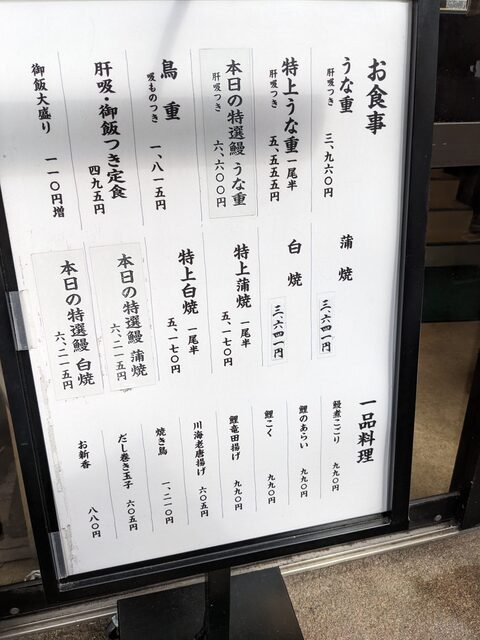 お食事
うな重 肝吸つき 三、九六〇円
特上うな重 一尾半 肝吸つき 五、五五五円
本日の特選鰻 うな重 肝吸つき 六、六〇〇円
鳥重 吸ものつき 一、八一五円
肝吸・御飯つき定食 四九五円
御飯大盛り 一一〇円増
蒲焼 三、六四一円
白焼 三、六四一円
特上蒲焼 一尾半 五、一七〇円
特上白焼 一尾半 五、一七〇円
本日の特選鰻 蒲焼 六、二一五円
本日の特選鰻 白焼 六、二一五円
一品料理
鰻煮こごり 九九〇円
鯉のあらい 九九〇円
鯉こく 九九〇円
鯉竜田揚げ 九九〇円
川海老唐揚げ 六〇五円
焼き鳥 一、二一〇円
だし巻き玉子 六〇五円
お新香 八八〇円